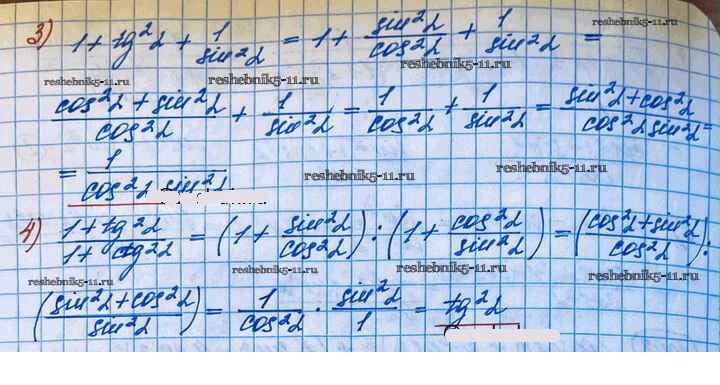 3) 1 + tg²α + 1/sin²α = 1 + sin²α/cos²α + 1/sin²α =
reshebnik5-11.ru
reshebnik5-11.ru reshebnik5-11.ru
(cos²α + sin²α)/cos²α + 1/sin²α = 1/cos²α + 1/sin²α = (sin²α + cos²α)/(cos²α sin²α) =
= 1/(cos²α sin²α)
reshebnik5-11.ru reshebnik5-11.ru
4) (1 + tg²α)/(1 + ctg²α) = (1 + sin²α/cos²α) : (1 + cos²α/sin²α) = ((cos²α + sin²α)/cos²α) :
reshebnik5-11.ru reshebnik5-11.ru reshebnik5-11.ru reshebnik5-11.ru
((sin²α + cos²α)/sin²α) = 1/cos²α · sin²α/1 = tg²α
reshebnik5-11.ru